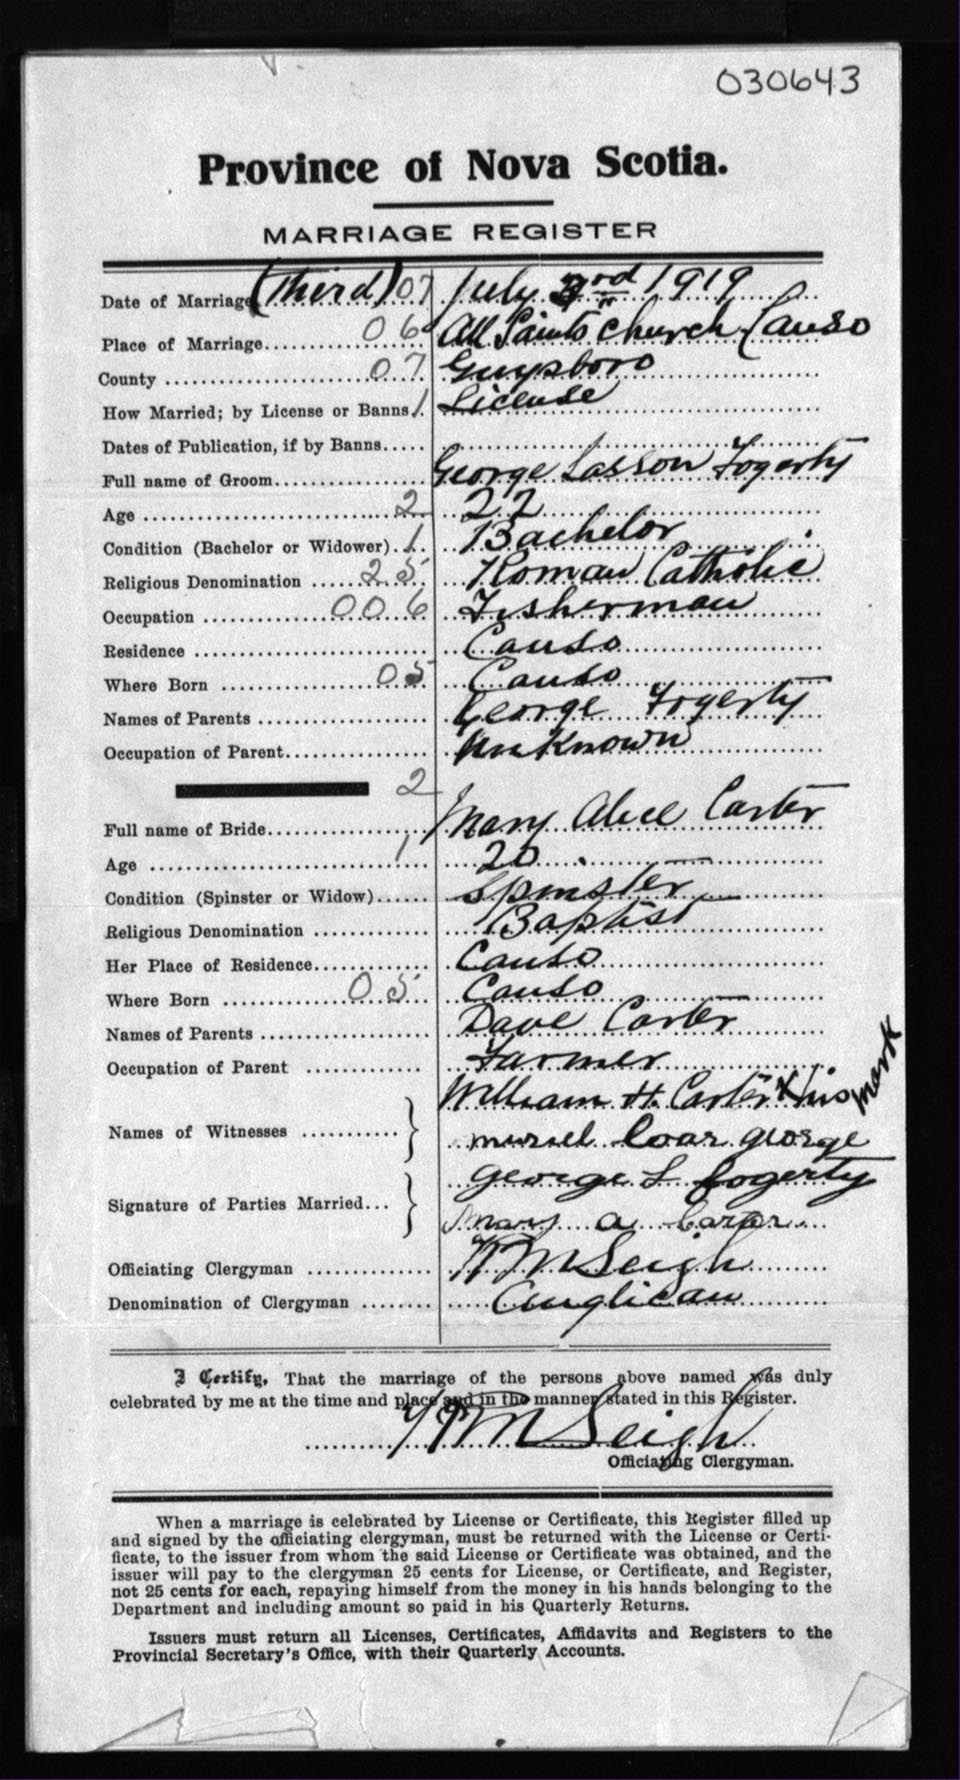 030643
Province of Nova Scotia.
MARRIAGE REGISTER
Date of Marriage (Third) 07 July 3rd 1919
Place of Marriage 06 All Saints Church Canso
County 07 Guysboro
How Married; by License or Banns 1 License
Dates of Publication, if by Banns
Full name of Groom George Lasson Fogerty
Age 2 22
Condition (Bachelor or Widower) 1 Bachelor
Religious Denomination 25 Roman Catholic
Occupation 006 Fisherman
Residence Canso
Where Born 05 Canso
Names of Parents George Fogerty
Occupation of Parent Unknown
2
Full name of Bride Mary Alice Carter
Age 1 20
Condition (Spinster or Widow) Spinster
Religious Denomination Baptist
Her Place of Residence Canso
Where Born 05 Canso
Names of Parents Dave Carter
Occupation of Parent Farmer
William H. Carter X his mark
Names of Witnesses muriel george
George L fogerty
Signature of Parties Married...
Mary a Carter
Officiating Clergyman
Denomination of Clergyman Anglican
I Certify, That the marriage of the persons above named was duly
celebrated by me at the time and place and in the manner stated in this Register.
Officiating Clergyman.
When a marriage is celebrated by License or Certificate, this Register filled up
and signed by the officiating clergyman, must be returned with the License or Certi-
ficate, to the issuer from whom the said License or Certificate was obtained, and the
issuer will pay to the clergyman 25 cents for License, or Certificate, and Register,
not 25 cents for each, repaying himself from the money in his hands belonging to the
Department and including amount so paid in his Quarterly Returns.
Issuers must return all Licenses, Certificates, Affidavits and Registers to the
Provincial Secretary's Office, with their Quarterly Accounts.